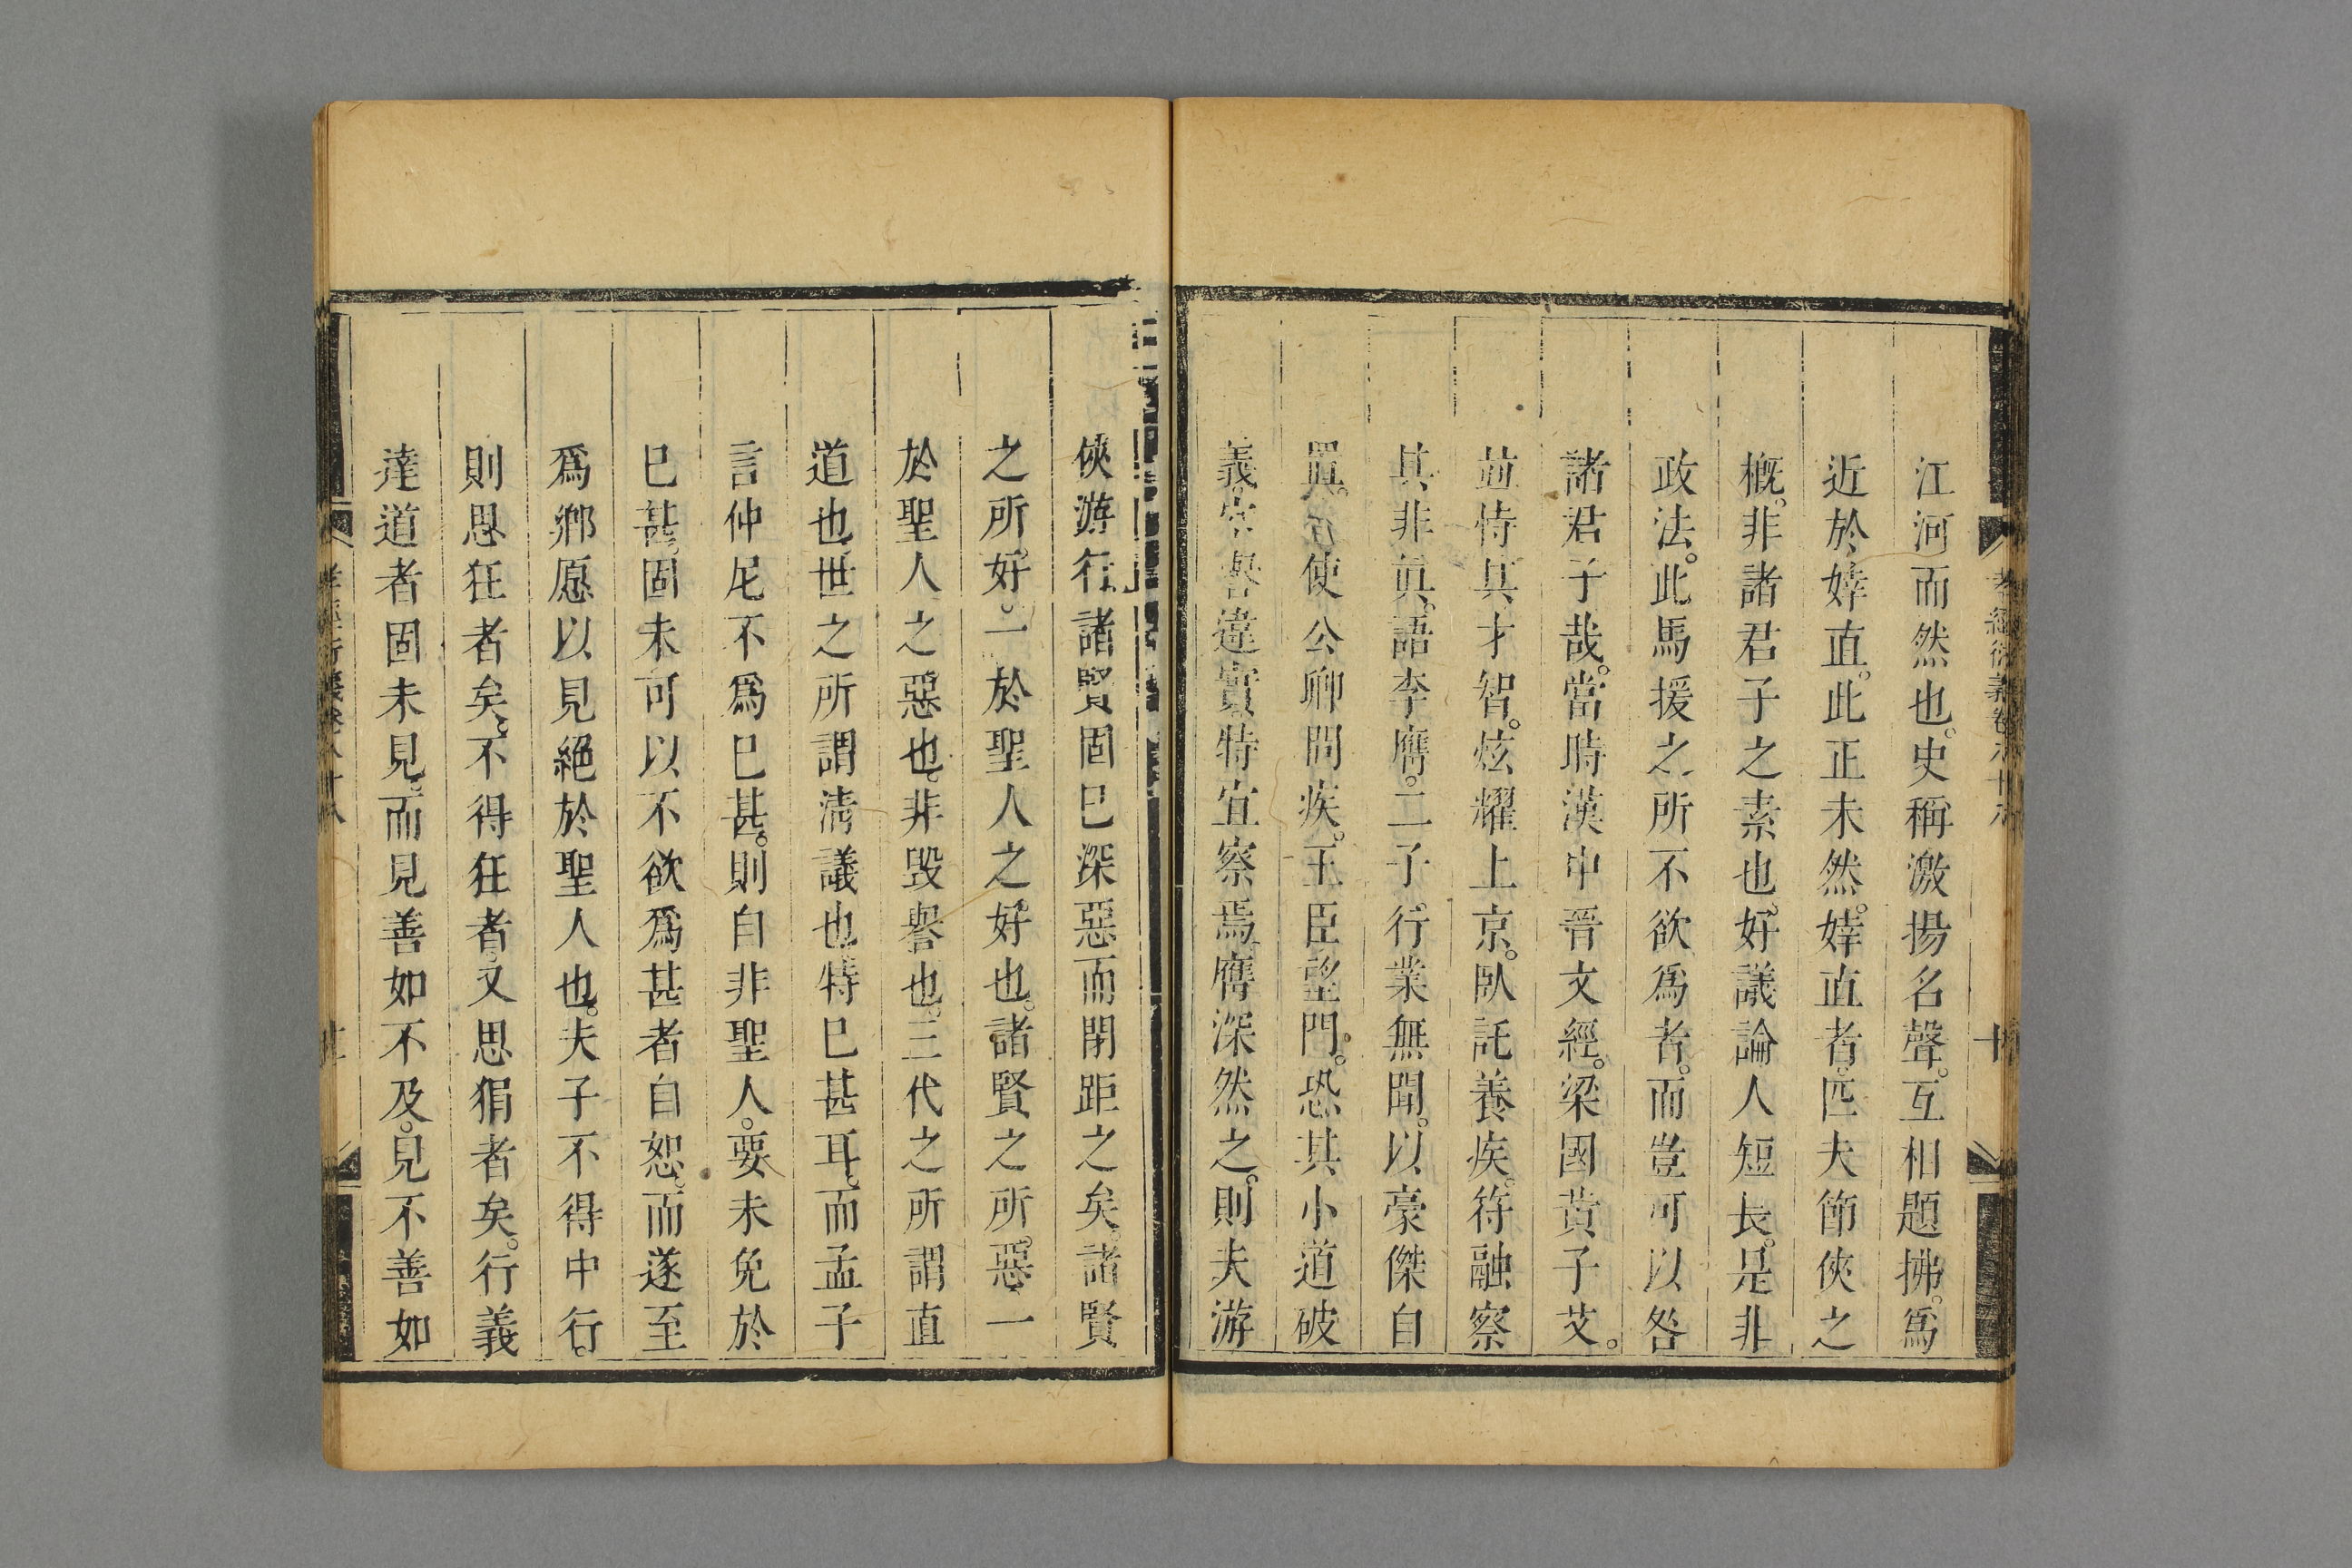 江河而然也。史稱激揚名聲。互相題拂。爲
近於婞直。此正未然。婞直者。匹夫節俠之
概。非諸君子之素也。好議論人短長。是非
政法。此馬援之所不欲爲者。而豈可以咎
諸君子哉。當時漢中晉文經。梁國黃子艾。
並恃其才智。炫耀上京。臥託養疾。符融察
其非眞。語李膺。二子行業無聞。以豪傑自
置。使公卿問疾。王臣望門。恐其小道破
義。空譽違實。特宜察焉。膺深然之。則夫游
俠游行。諸賢固已深惡而閉距之矣。諸賢
之所好。一於聖人之好也。諸賢之所惡。一
於聖人之惡也。非毀譽也。三代之所謂直
道也。世之所謂淸議也。特巳甚耳。而孟子
言仲尼不爲巳甚。則自非聖人。要未免於
巳甚。固未可以不欲爲甚者自恕。而遂至
爲鄉愿以見絕於聖人也。夫子不得中行。
則思狂者矣。不得狂者。又思狷者矣。行義
達道者固未見。而見善如不及。見不善如